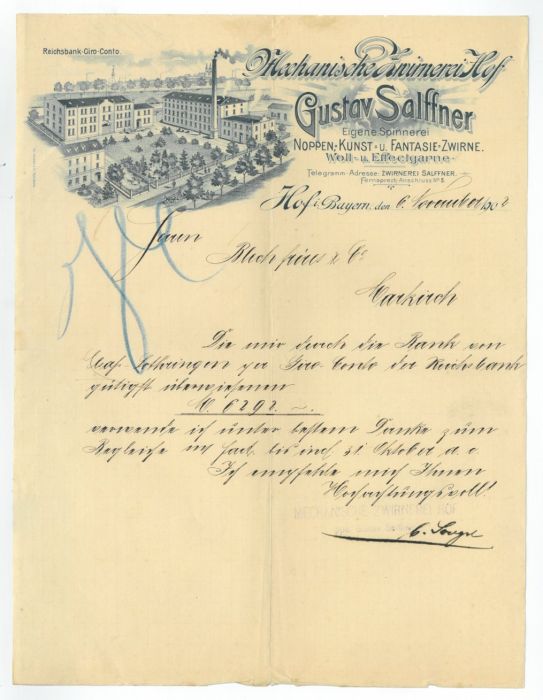 Reichsbank-Giro-Conto.
Mechanische Zwirnerei Hof
Gustav Salffner
Eigene Spinnerei
Noppen-, Kunst- u. Fantasie-Zwirne.
Woll- u. Effectgarne.
Telegramm-Adresse: ZWIRNEREI SALFFNER.
Fernsprech-Anschluss No 5.
Hof i. Bayern, den 6. November 1902
Herrn
Blech frères & Co
Markirch
Die mir durch die Bank von
Els. Lothringen per Giro Conto der Reichsbank
gütigst überwiesenen
M. 6292.
verwende ich unter bestem Danke zum
Ausgleiche bis incl. 31. Oktober a. c.
Ich empfehle mich Ihnen
Hochachtungsvoll!
MECHANISCHE ZWIRNEREI HOF